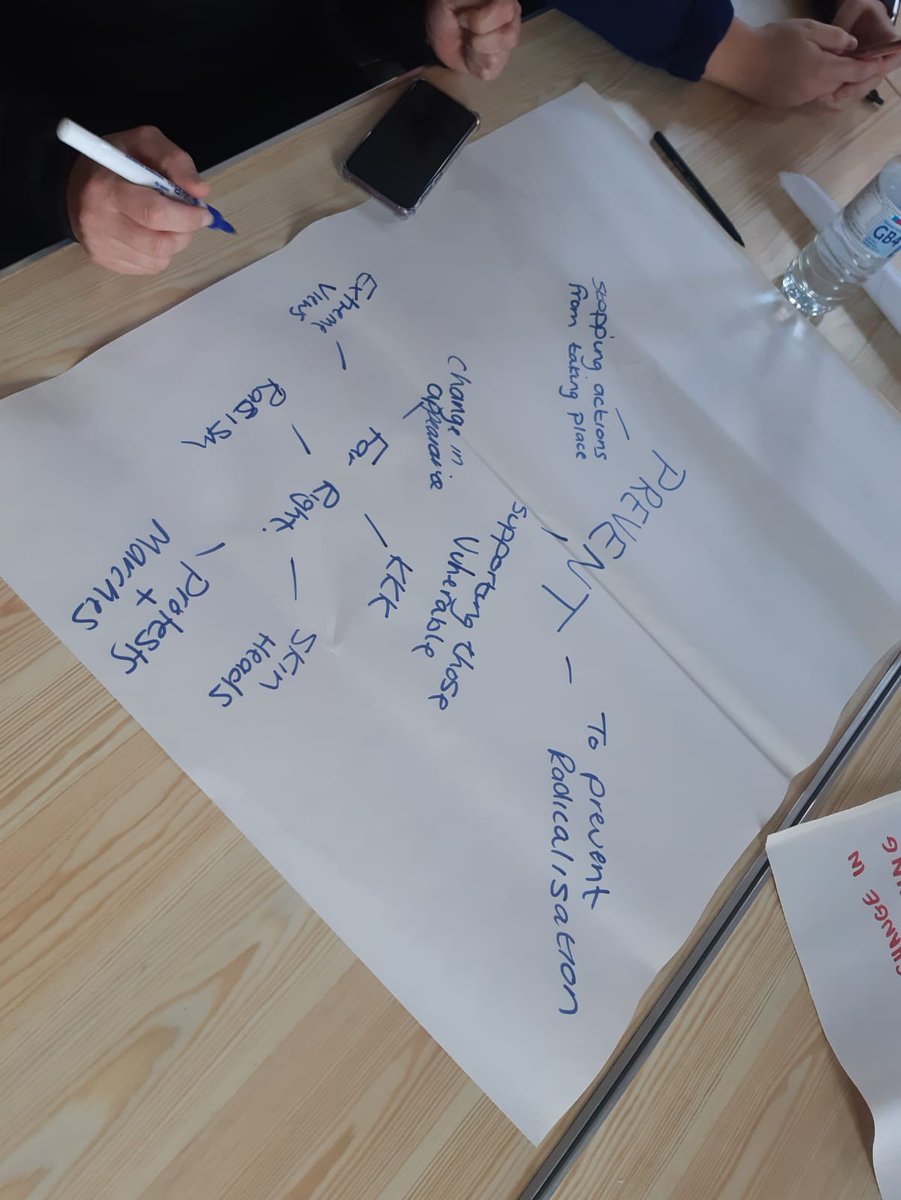 PREVENT
Stopping actions
from taking place
To prevent
Radicalisation
Supporting those
Vulnerable
Far
Right!
Extreme
Views
Change in
appearance
Racism
KKK
Skin
Heads
Protests
+
Marches
CHANGE IN